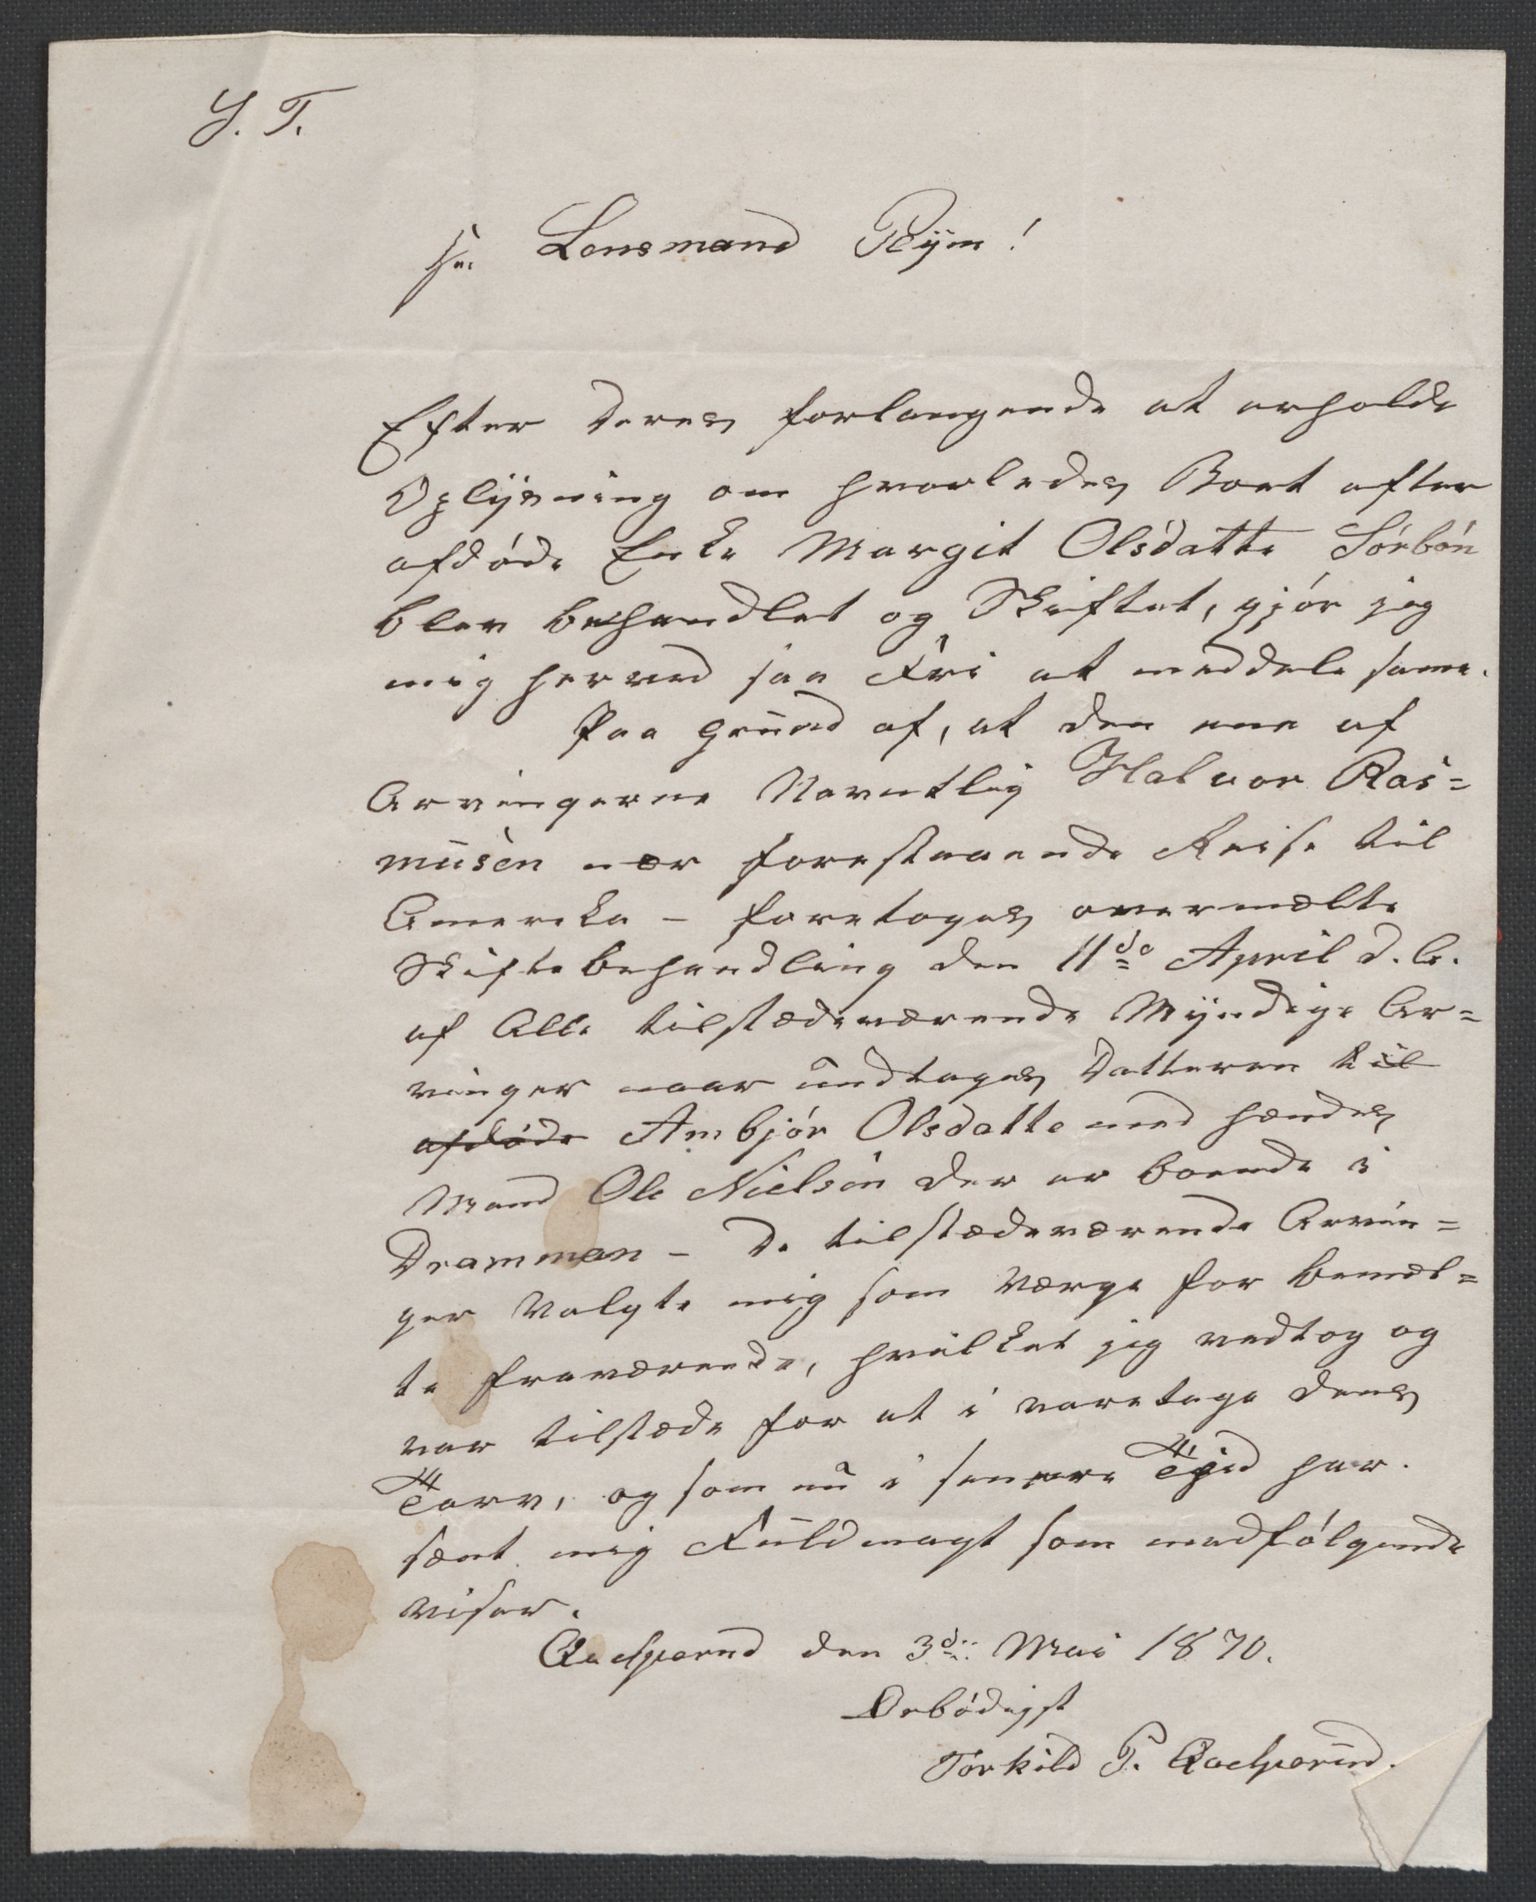 S. T.
Hr. Lensmand Ryen!
Efter deres forlangende at erholde
Oplysning om hvorledes Boet efter
afdøde Enke Margit Olsdatte Sørbøn
blev behandlet og Skiftet, gjør jeg
mig herved saa Fri at meddele same.
Paa grund af, at den ene af
Arvingerne Navntlig Halvor Ras=
musen nær forestaaende Reise til
Amereka – foretoges overmælte
Skiftebehandling den 11de April d. A.
af Alle tilstædeværende Myndige Ar=
vinger naar undtages Datteren til
afdøde Ambjør Olsdatte med hændes
Mand Ole Nielsen der er boende i
Drammen – De tilstædeværende Arvin=
ger Valgte mig som Værge for bemel=
te fraværende, hvilket jeg vedtog og
var tilstæde for at i varetage dens
Tarv, og som nu i senere Tjid har
sænt mig Fuldmagt som medfølgende
viser.
den 3die Mai 1870.
Ærbødigst
Torkild T.